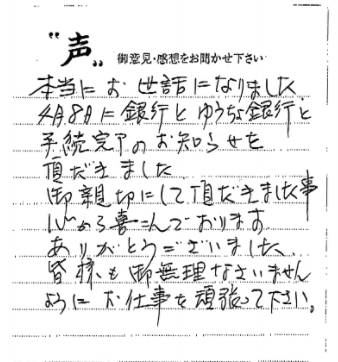 "声"
御意見・感想をお聞かせ下さい
本当にお世話になりました
4月8日に銀行とゆうちょ銀行と
手続完了のお知らせを
頂だきました
御親切にして頂だきました事
心から喜こんでおります
ありがとうございました
皆様も御無理なさいません
ようにお仕事を頑張って下さい。